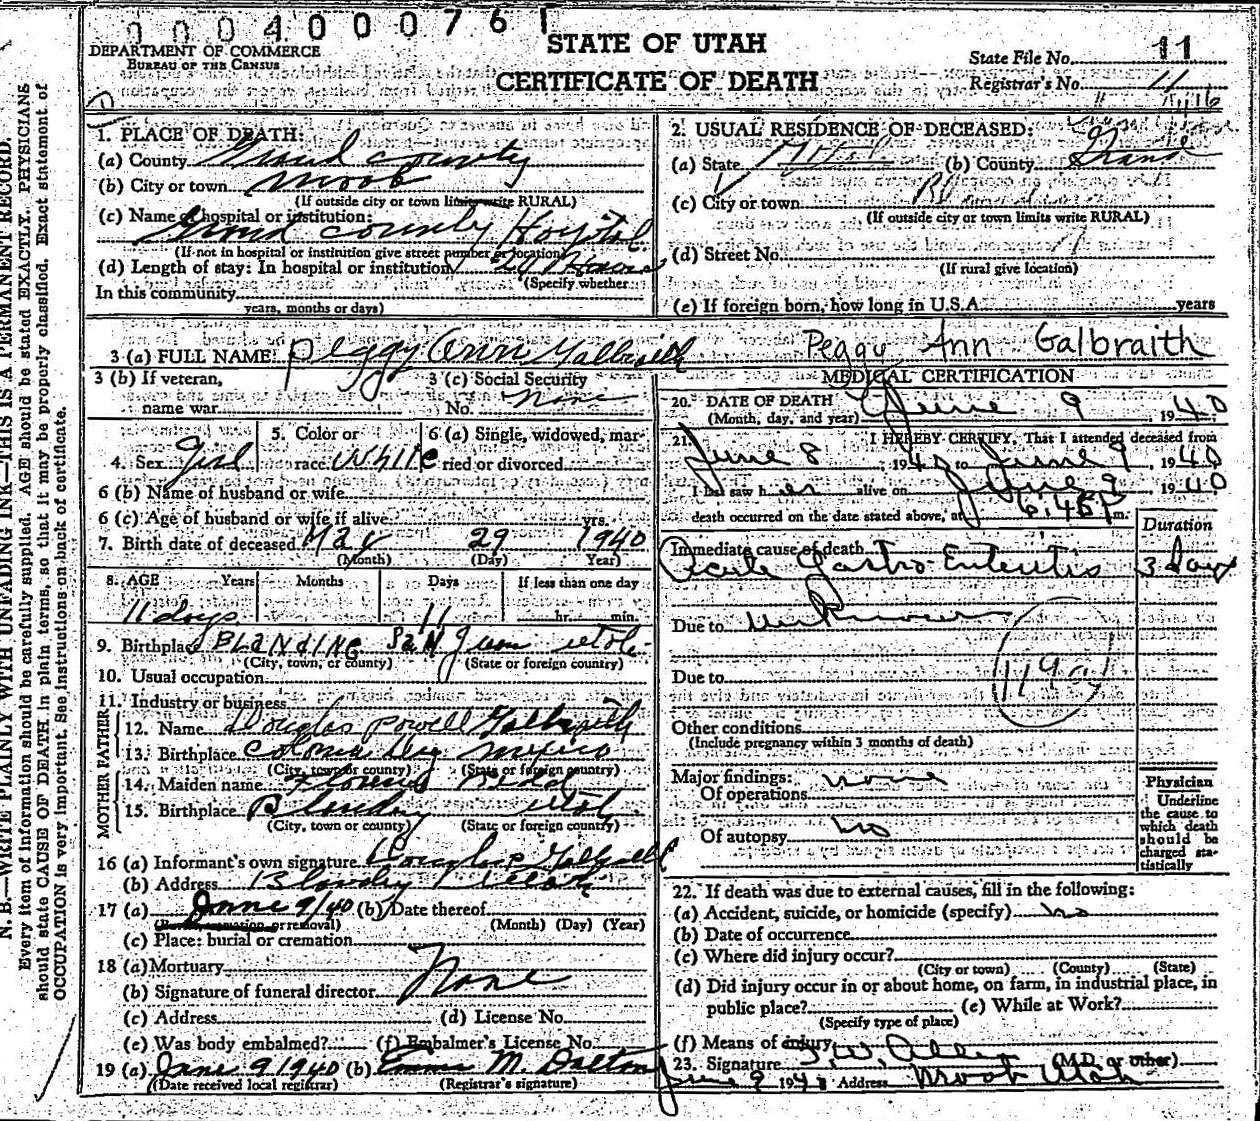 0004000761
DEPARTMENT OF COMMERCE
BUREAU OF THE CENSUS
STATE OF UTAH
CERTIFICATE OF DEATH
State File No. 11
Registrar's No. 11
N. B.—WRITE PLAINLY WITH UNFADING INK—THIS IS A PERMANENT RECORD.
Every item of information should be carefully supplied. AGE should be stated EXACTLY. PHYSICIANS
should state CAUSE OF DEATH in plain terms, so that it may be properly classified. Exact statement of
OCCUPATION is very important. See instructions on back of certificate.
1. PLACE OF DEATH:
(a) County Grand county
(b) City or town Moab
(If outside city or town limits write RURAL)
(c) Name of hospital or institution:
Grand county Hospital
(If not in hospital or institution give street number or location)
(d) Length of stay: In hospital or institution 24 Hours
(Specify whether
In this community
years, months or days)
2. USUAL RESIDENCE OF DECEASED:
(a) State Utah (b) County Grand
(c) City or town
(If outside city or town limits write RURAL)
(d) Street No.
(If rural give location)
(e) If foreign born, how long in U.S.A. years
3 (a) FULL NAME: Peggy Ann Galbraith Peggy Ann Galbraith
3 (b) If veteran,
name war
3 (c) Social Security
No. none
4. Sex Girl
5. Color or
race White
6 (a) Single, widowed, mar-
ried or divorced
6 (b) Name of husband or wife
6 (c) Age of husband or wife if alive yrs.
7. Birth date of deceased May 29 1940
(Month) (Day) Year)
8. AGE Years Months Days If less than one day
11 days 11 hr. min.
9. Birthplace BLANDING San Juan utah
(City, town, or county) (State or foreign country)
10. Usual occupation
11. Industry or business
FATHER
12. Name Douglas Powell Galbraith
13. Birthplace Colonia Diaz Mexico
(City, town or county) (State or foreign country)
MOTHER
14. Maiden name Florence Redd
15. Birthplace Blanding utah
(City, town or county) (State or foreign country)
16 (a) Informant's own signature Douglas Galbraith
(b) Address Blanding Utah
17 (a) June 9/40 (b) Date thereof
(Burial, cremation or removal) (Month) (Day) (Year)
(c) Place: burial or cremation
18 (a) Mortuary
(b) Signature of funeral director None
(c) Address (d) License No.
(e) Was body embalmed? (f) Embalmer's License No.
19 (a) June 9 1940 (b) Emma M. Dalton
(Date received local registrar) (Registrar's signature)
MEDICAL CERTIFICATION
20. DATE OF DEATH
(Month, day, and year) June 9 1940
21. I HEREBY CERTIFY, That I attended deceased from
June 8, 1940 to June 9, 1940
I last saw her alive on June 9, 1940
death occurred on the date stated above, at 6:45 P m.
Duration
Immediate cause of death
Acute Gastro-Enteritis 3 days
Due to unknown
119a
Due to
Other conditions
(Include pregnancy within 3 months of death)
Major findings:
Of operations none
Of autopsy no
Physician
Underline
the cause to
which death
should be
charged sta-
tistically
22. If death was due to external causes, fill in the following:
(a) Accident, suicide, or homicide (specify) no
(b) Date of occurrence
(c) Where did injury occur?
(City or town) (County) (State)
(d) Did injury occur in or about home, on farm, in industrial place, in
public place? (e) While at Work?
(Specify type of place)
(f) Means of injury
23. Signature I. W. Allen (M.D. or other)
June 9 1940 Address Moab Utah